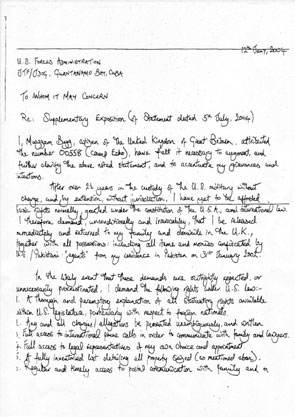 12th July, 2004
U.S. Forces Administration
JTF/JDOG, Guantanamo Bay, Cuba
To Whom It May Concern
Re: Supplementary Exposition (of Statement dated 5th July, 2004)
I, Moazzam Begg, citizen of the United Kingdom of Great Britain, attributed
the number 00558 (Camp Echo), have felt it necessary to augment, and
further clarify the above noted statement, and to accentuate my grievances and
intentions.
After over 2½ years in the custody of the U.S. military without
charge, and, by extension, without jurisdiction, I have yet to be afforded
basic rights normally granted under the constitution of the U.S.A., and international law.
I therefore demand, unconditionally and irrevocably, that I be released
immediately and returned to my family and domicile in the U.K.,
together with all possessions: including all items and monies confiscated by
U.S./Pakistani "agents" from my residence in Pakistan on 31st January 2002.
In the likely event that these demands are outrightly rejected, or
unnecessarily procrastinated, I demand the following rights under U.S. law:-
1. A thorough and parenting explanation of all statutory rights available
within U.S. legislature, particularly with respect to foreign nationals.
2. Any and all charges/allegations be presented unambiguously, and written.
3. Full access to international phone calls in order to communicate with family and lawyers.
4. Full access to legal representatives of my own choice and appointment
5. A fully inventoried list detailing all property seized (as mentioned above).
6. Regular and timely access to postal communication with family and